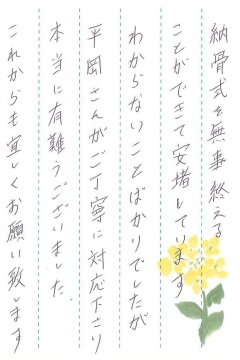 納骨式を無事終える
ことができて安堵しています
わからないことばかりでしたが
平岡さんがご丁寧に対応下さり
本当に有難うございました。
これからも宜しくお願い致します